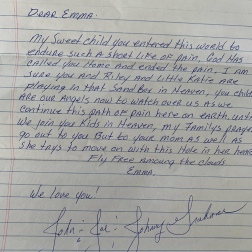 DEAR EMMA:
My Sweet child you entered this world to
endure such a short life of pain, God Has
called you Home and Ended the pain. I am
sure you and Riley and Little Katie are
playing in that SandBox in Heaven, you child
are our Angels now to watch over us as we
continue this path of pain here on earth, unti
we join you Kids in Heaven, my family's prayer
go out to you But to your Mom as well As
she trys to move on with this Hole in her
Fly Free among the clouds
EMMA.
We love you!
John